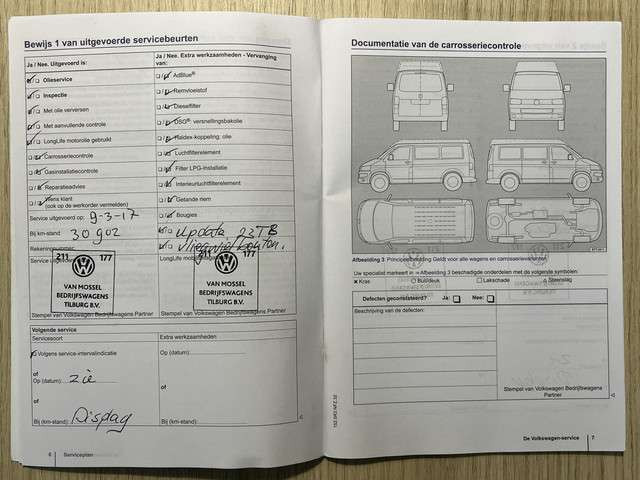 Bewijs 1 van uitgevoerde servicebeurten
Ja / Nee. Uitgevoerd is:
Olieservice
Inspectie
Met olie verversen
Met aanvullende controle
LongLife motorolie gebruikt
Carrosseriecontrole
Gasinstallatiecontrole
Reparatieadvies
Wens klant
(ook op de werkorder vermelden)
Service uitgevoerd op: 9-3-17
Bij km-stand: 30902
Rekeningnummer:
Service uitgevoerd
211 177
VAN MOSSEL
BEDRIJFSWAGENS
TILBURG B.V.
Stempel van Volkswagen Bedrijfswagens Partner
Ja / Nee. Extra werkzaamheden - Vervanging van:
AdBlue®
Remvloeistof
Dieselfilter
DSG®: versnellingsbakolie
Haldex-koppeling: olie
Luchtfilterelement
Filter LPG-installatie
Interieurluchtfilterelement
Getande riem
Bougies
Update 23TB
vliegwiel bouten.
LongLife
211 177
VAN MOSSEL
BEDRIJFSWAGENS
TILBURG B.V.
Stempel van Volkswagen Bedrijfswagens Partner
Volgende service
Servicesoort
Volgens service-intervalindicatie
of
Op (datum): zie
of
Bij (km-stand): Display
Extra werkzaamheden
Op (datum):
of
Bij (km-stand):
6 Serviceplan
Documentatie van de carrosseriecontrole
Afbeelding 3 Principeafbeelding: Geldt voor alle wagens en carrosserievarianten.
Uw specialist markeert in ⇒ Afbeelding 3 beschadigde onderdelen met de volgende symbolen:
× Kras ○ Buil/deuk □ Lakschade △ Steenslag
Defecten geconstateerd? Ja: Nee:
Beschrijving van de defecten:
Stempel van Volkswagen Bedrijfswagens
Partner
De Volkswagen-service 7